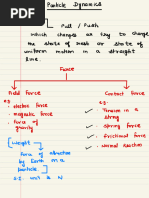 Particle Dynamics
Pull / Push
which changes or try to change
the state of rest or state of
uniform motion in a straight
line.
Force
Field force
Contact Force
e.g.
e.g.
• electric force
• Tension in a
string
• magnetic force
• spring force
• Force of
gravity
• frictional force
[Weight]
• Normal reaction
Force of attraction
by Earth on a
particle.
S.I. unit is N